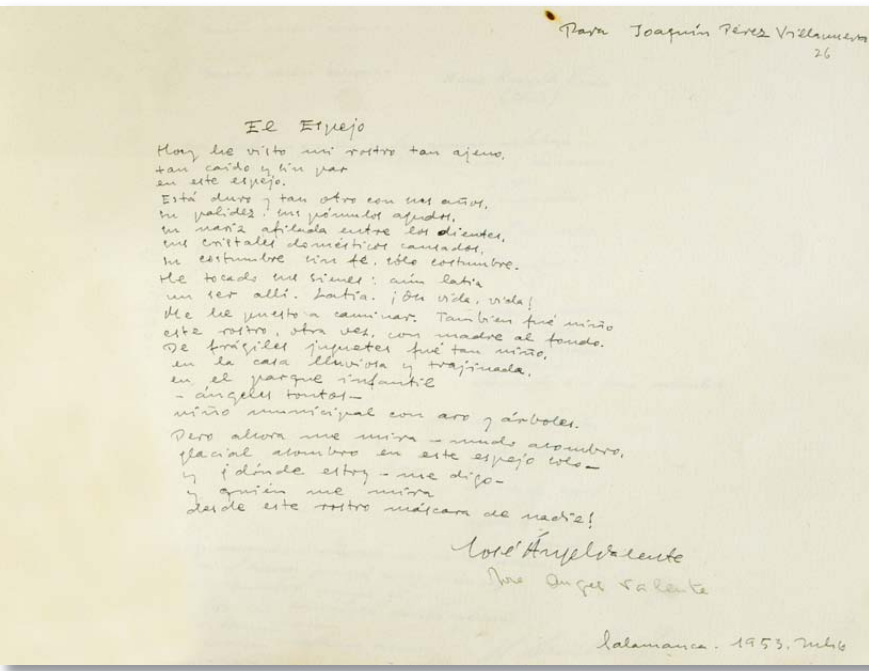 Para Joaquín Pérez Villanueva
26
El Espejo
Hoy he visto mi rostro tan ajeno,
tan caído y sin par
en este espejo.
Está duro y tan otro con sus años,
su palidez, sus pómulos agudos,
su nariz afilada entre los dientes,
sus cristales domésticos cansados,
su costumbre sin fé, sólo costumbre.
He tocado sus sienes: aún latía
un ser allí. Latía. ¡Oh vida, vida!
Me he puesto a caminar. También fué niño
este rostro, otra vez, con madre al fondo.
De frágiles juguetes fué tan niño,
en la casa lluviosa y trajinada,
en el parque infantil
- ángeles tontos -
niño municipal con aro y árboles.
Pero ahora me mira - mudo asombro,
glacial asombro en este espejo solo -
y ¿dónde estoy - me digo -
y quién me mira
desde este rostro máscara de nadie?
José Ángel Valente
José Angel Valente
Salamanca. 1953. Julio